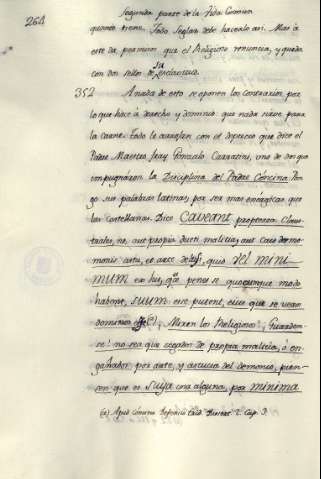 264
Segunda parte de la Vida Comun
quanto tiene. Todo Seglar debe hacerlo asi. Mas á
este da permiten que el Religioso renuncia, y queda
con dos sellos de su
352 A nada de esto se oponen los Contrarios por
lo que hace á derecho y dominio que nada sirve para
la carne. Todo lo arrastran con el desprecio que dice el
Padre Maestro Fray Gonzalo Carrattini, uno de los que
impugnáron la Disciplina del Padre Concina. Pon
go sus palabras latinas, por ser mas enérgicas que
las castellanas. Dice Caveant propterea Claus
trales, ne, aut propria ducti malitia, aut caco
arte, ex arce quia vel mini
mum ex his, quae penes se quocumque modo
habent, suum esse putent, eius que se veram
dominos Miren los Religiosos! Guarden
se! no sea que cegados de propia malicia, ó en
gañados por arte, y astucia del demonio, pien
sen que es suya cosa alguna, por minima
(a) Apud Concina 2. Cap. 3.